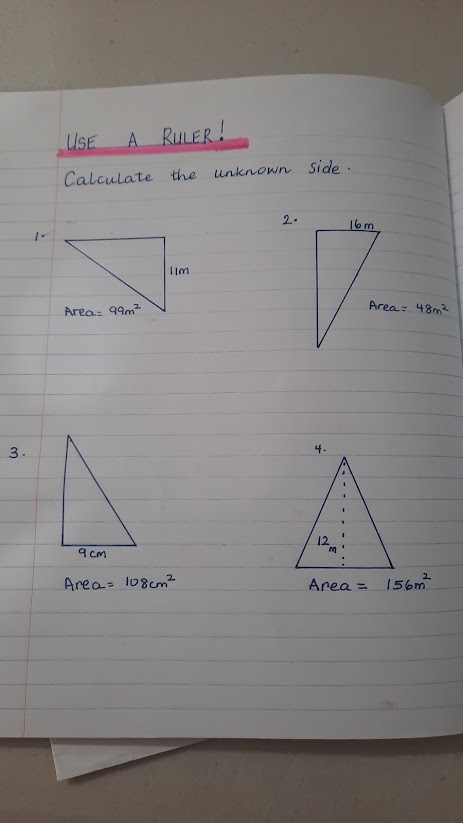 USE A RULER!
Calculate the unknown side.
1.
11m
Area = 99m²
2.
16m
Area = 48m²
3.
9cm
Area = 108cm²
4.
12m
Area = 156m²